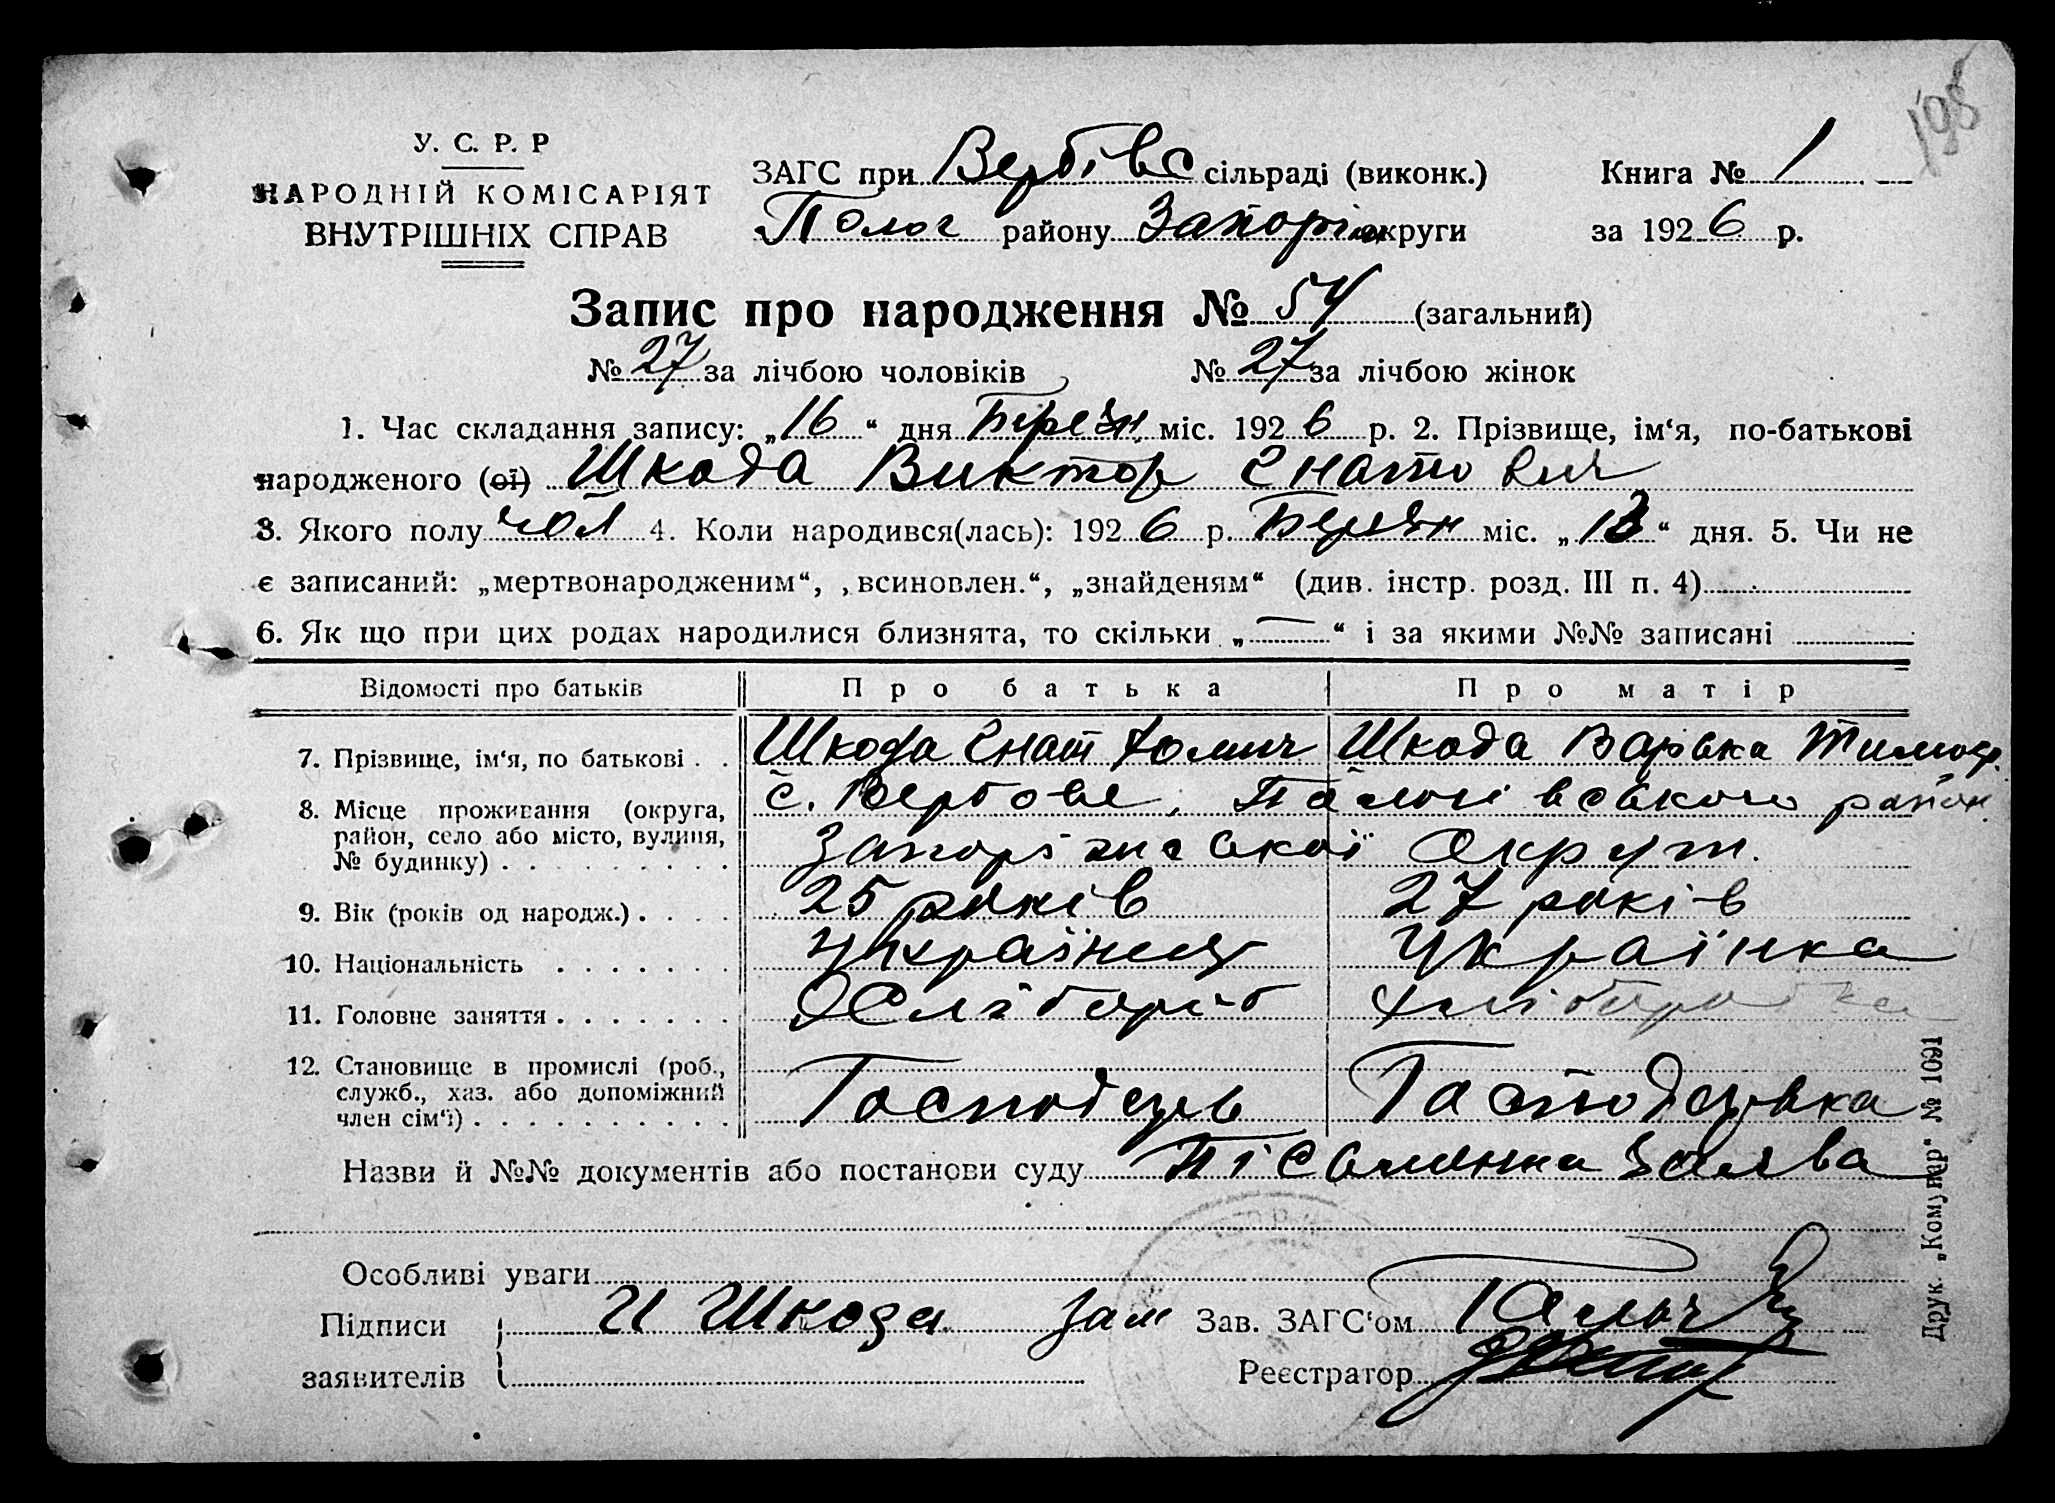 198
У. С. Р. Р
НАРОДНІЙ КОМІСАРІЯТ
ВНУТРІШНІХ СПРАВ
ЗАГС при Вербівс сільраді (виконк.) Книга № 1
Полог району Запоріж округи за 1926 р.
Запис про народження № 54 (загальний)
№ 27 за лічбою чоловіків № 27 за лічбою жінок
1. Час складання запису: „16“ дня Березн міс. 1926 р. 2. Прізвище, ім‘я, по-батькові
народженого (ої) Шкода Виктор Гнатович
3. Якого полу чол 4. Коли народився(лась): 1926 р. Березн міс. „13“ дня. 5. Чи не
є записаний: „мертвонародженим“, „всиновлен.“, „знайденям“ (див. інстр. розд. III п. 4)
6. Як що при цих родах народилися близнята, то скільки „—“ і за якими №№ записані
Відомості про батьків Про батька Про матір
7. Прізвище, ім‘я, по батькові . . Шкода Гнат Шкода Варька Тимоф.
8. Місце проживання (округа, район, село або місто, вулиця, № будинку) с. Вербове, Пологівського район.
Запоріжської Округи.
9. Вік (років од народж.) 25 років 27 років
10. Національність Українець Українка
11. Головне заняття Хлібороб Хліборобка
12. Становище в промислі (роб., служб., хаз. або допоміжний член сім‘ї) Господарь Господарька
Назви й №№ документів або постанови суду Пісьменна заява
Особливі уваги
Підписи И Шкода Зам Зав. ЗАГС‘ом
заявителів Реєстратор
Друк. „Комунар“ № 1091